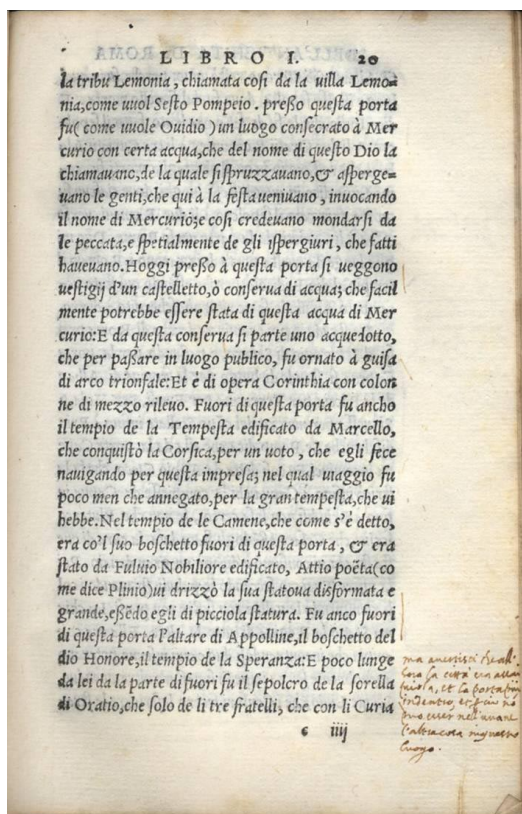 LIBRO I. 20
la tribu Lemonia, chiamata cosi da la uilla Lemo=
nia, come uuol Sesto Pompeio. preßo questa porta
fu( come uuole Ouidio ) un luogo consecrato à Mer
curio con certa acqua, che del nome di questo Dio la
chiamauano, de la quale si spruzzauano, & asperge=
uano le genti, che qui à la festa ueniuano, inuocando
il nome di Mercurio; e cosi credeuano mondarsi da
le peccata, e spetialmente de gli ispergiuri, che fatti
haueuano. Hoggi preßo à questa porta si ueggono
uestigij d'un castelletto, ò conserua di acqua; che facil
mente potrebbe essere stata di questa acqua di Mer
curio: E da questa conserua si parte uno acquedotto,
che per paßare in luogo publico, fu ornato à guisa
di arco trionfale: Et é di opera Corinthia con colon
ne di mezzo rileuo. Fuori di questa porta fu ancho
il tempio de la Tempesta edificato da Marcello,
che conquistò la Corsica, per un uoto, che egli fece
nauigando per questa impresa; nel qual uiaggio fu
poco men che annegato, per la gran tempesta, che ui
hebbe. Nel tempio de le Camene, che come s'é detto,
era co'l suo boschetto fuori di questa porta, & era
stato da Fuluio Nobiliore edificato, Attio poëta(co
me dice Plinio)ui drizzò la sua statoua disformata e
grande, eßẽdo egli di picciola statura. Fu anco fuori
di questa porta l'altare di Appolline, il boschetto del
dio Honore, il tempio de la Speranza: E poco lunge
da lei da la parte di fuori fu il sepolcro de la sorella
di Oratio, che solo de li tre fratelli, che con li Curia
c iiij
ma
la città era
et la porta
indentro, et
luogo.